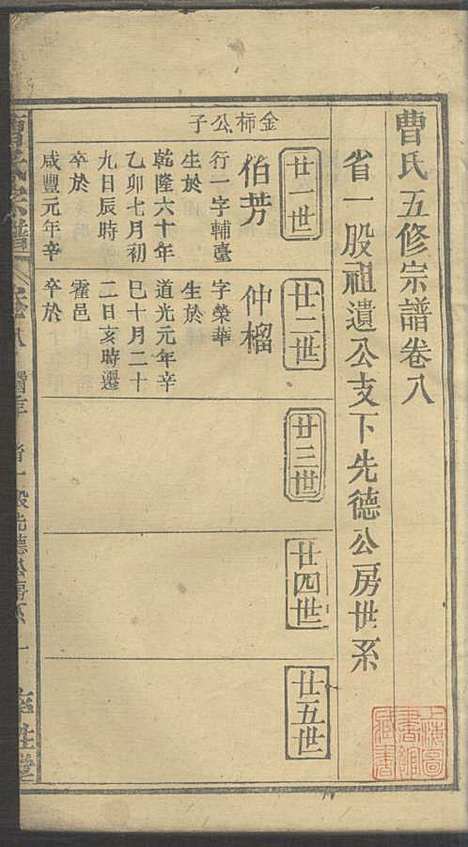 曹氏五修宗譜卷八
省一股祖遺公支下先德公房世系
廿一世
廿二世
廿三世
廿四世
廿五世
金柿公子
伯芳
行一字輔臺
生於
乾隆六十年
乙卯七月初
九日辰時
卒於
咸豐元年辛
仲榴
字榮華
生於
道光元年辛
巳十月二十
二日亥時遷
霍邑
卒於
上海圖
書館
藏書